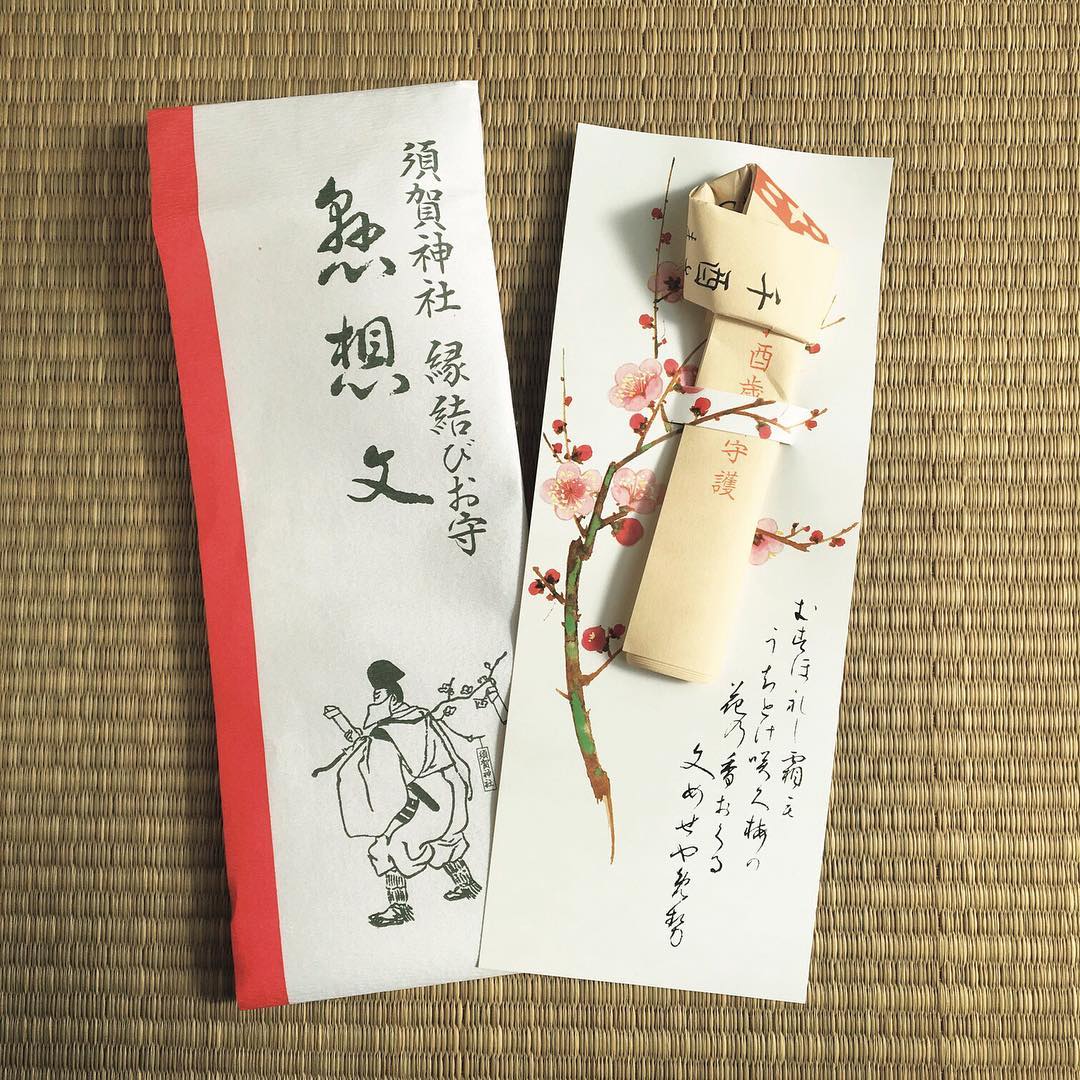 須賀神社 縁結びお守
懸想文
須賀神社
酉歳
守護
むすほ礼し霜も
うちとけ咲く梅の
花の香おくる
文めせや